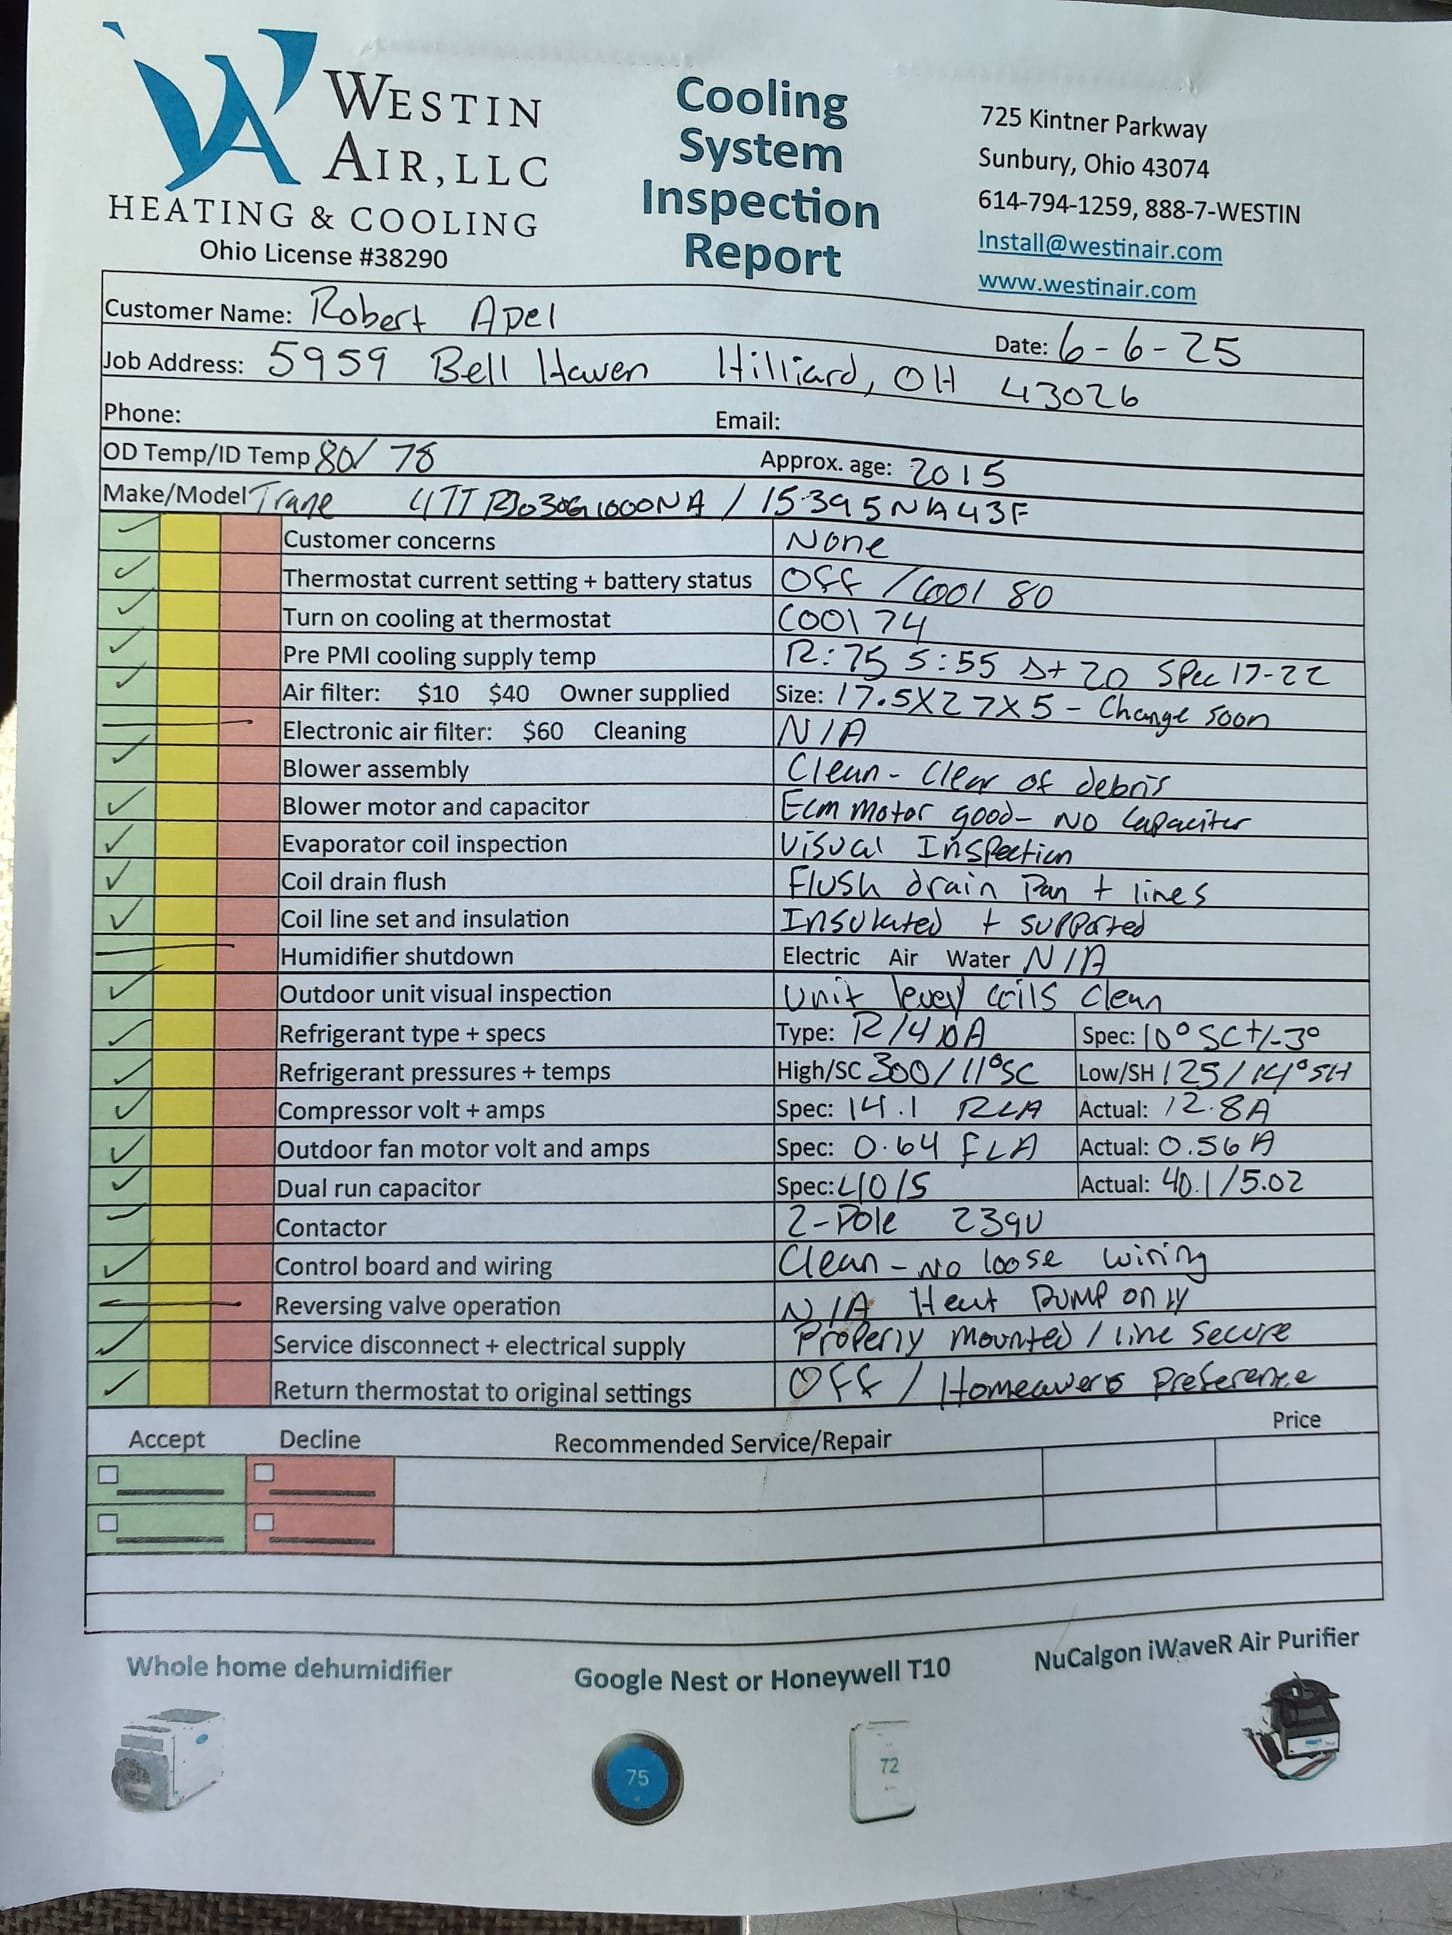 WESTIN
AIR, LLC
HEATING & COOLING
Ohio License #38290
Cooling
System
Inspection
Report
725 Kintner Parkway
Sunbury, Ohio 43074
614-794-1259, 888-7-WESTIN
Install@westinair.com
www.westinair.com
Customer Name: Robert Apel Date: 6-6-25
Job Address: 5959 Bell Haven Hilliard, OH 43026
Phone: Email:
OD Temp/ID Temp 80/ 78 Approx. age: 2015
Make/Model Trane / 15395NA43F
Customer concerns None
Thermostat current setting + battery status OFF / Cool 80
Turn on cooling at thermostat Cool 74
Pre PMI cooling supply temp R: 75 S: 55 Δt 20 Spec 17-22
Air filter: $10 $40 Owner supplied Size: 17.5X27X5 - Change soon
Electronic air filter: $60 Cleaning N/A
Blower assembly Clean - Clear of debris
Blower motor and capacitor Ecm motor good - No Capacitor
Evaporator coil inspection Visual Inspection
Coil drain flush Flush drain Pan + lines
Coil line set and insulation Insulated + supported
Humidifier shutdown Electric Air Water N/A
Outdoor unit visual inspection Unit level coils clean
Refrigerant type + specs Type: R/410A Spec: 10° SC +/-3°
Refrigerant pressures + temps High/SC 300/11°SC Low/SH 125/14°SH
Compressor volt + amps Spec: 14.1 RLA Actual: 12.8A
Outdoor fan motor volt and amps Spec: 0.64 FLA Actual: 0.56A
Dual run capacitor Spec: 40/5 Actual: 40.1/5.02
Contactor 2-Pole 239V
Control board and wiring Clean - No loose wiring
Reversing valve operation N/A Heat Pump only
Service disconnect + electrical supply Properly mounted / line secure
Return thermostat to original settings OFF / Homeowners Preference
Accept Decline Recommended Service/Repair Price
Whole home dehumidifier
Google Nest or Honeywell T10
NuCalgon iWaveR Air Purifier
75
72